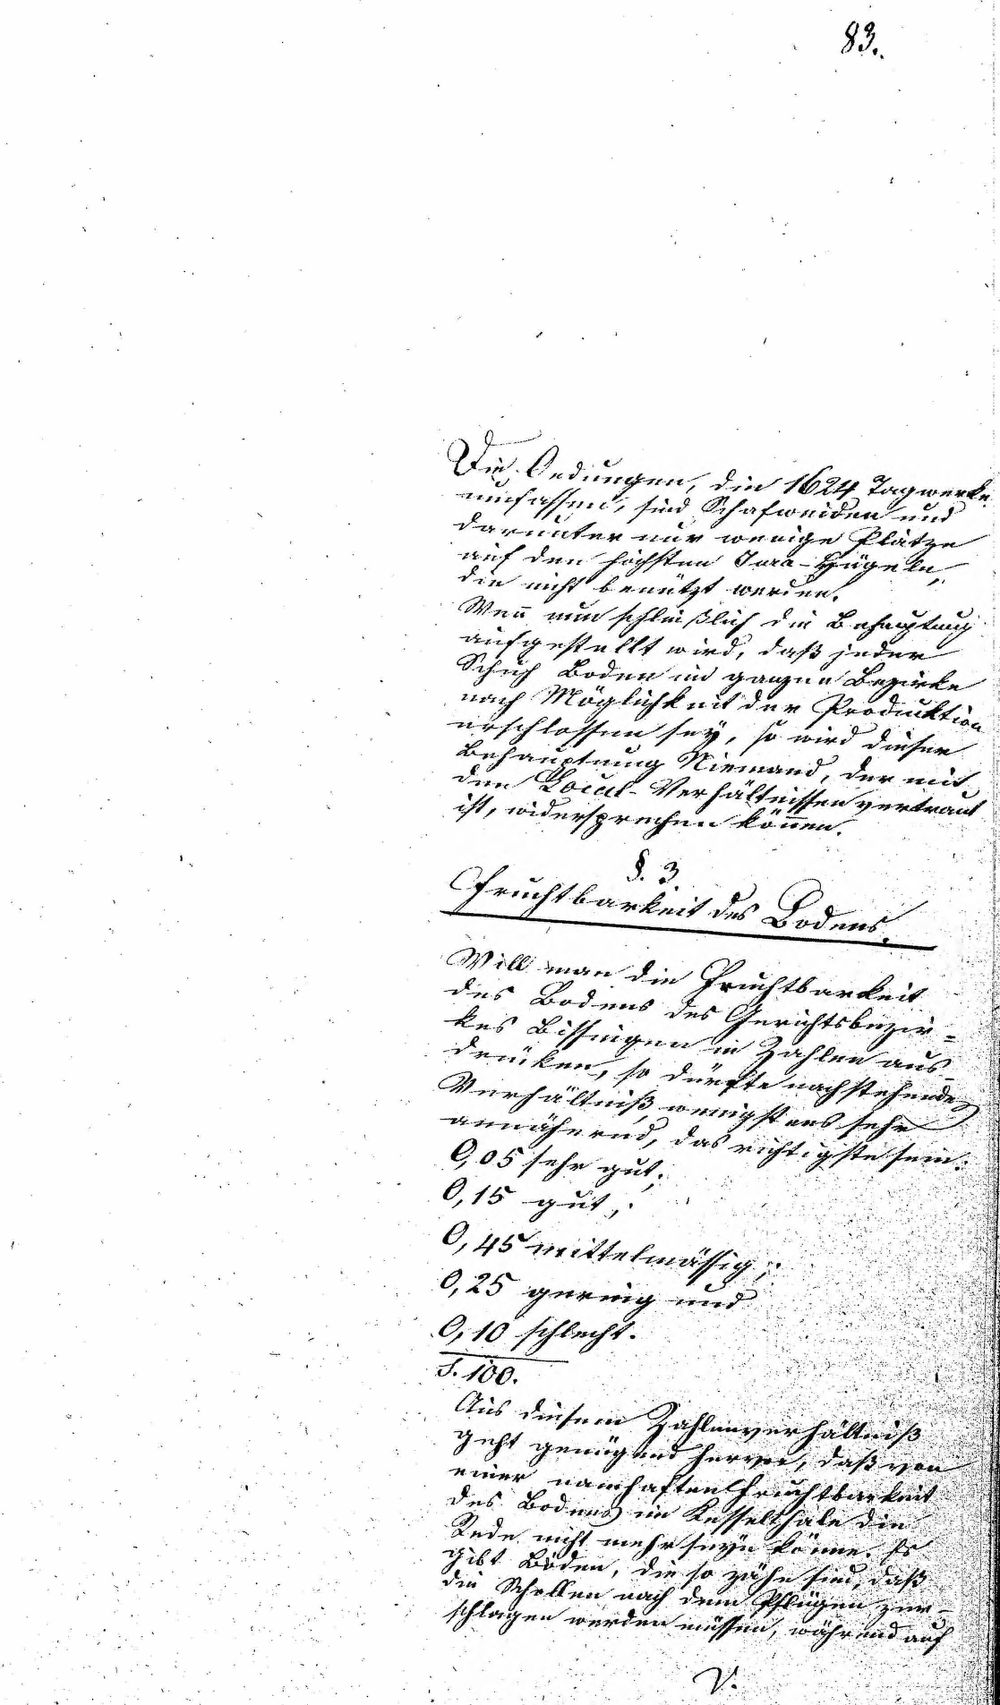 83.
Die Oedungen, die 1624 Tagwerke
umfassen, sind Schafweiden und
darunter nur wenige Plätze
auf den höchsten Jura-Hügeln,
die nicht benützt werden.
Wen̄ nun schließlich die Behauptung
aufgestellt wird, daß jeder
Schuh Boden im ganzen Bezirke
nach Möglichkeit der Produktion
erschlossen sey, so wird dieser
Behauptung Niemand, der mit
den Local-Verhältnissen vertraut
ist, widersprechen kön̄en.
§. 3
Fruchtbarkeit des Bodens.
Will man die Fruchtbarkeit
des Bodens des Gerichtsbezir=
kes Bissingen in Zahlen aus=
drücken, so dürfte nachstehendes
Verhältniß wenigstens sehr
annähernd, das richtigste sein:
0,05 sehr gut;
0,15 gut;
0,45 mittelmässig;
0,25 gering und
0,10 schlecht.
S. 100.
Aus diesem Zahlenverhältniß
geht genügend hervor, daß von
einer namhaften Fruchtbarkeit
des Bodens im Kesselthale die
Rede nicht mehr seyn könne. Es
gibt Böden, die so zähe sind, daß
die Schollen nach dem Pflügen zer=
schlagen werden müssen, während auf
V.